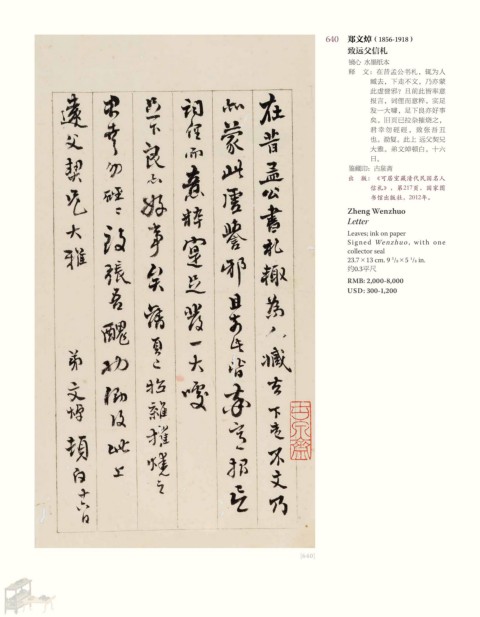 在昔孟公書札輒為人臧去下走不文乃
亦蒙此虛譽邪且前此皆率意报言
词俚而意粹寔足發一大噱
足下良亦好事矣舊頁已拉雜摧燒之
君幸勿硜硜致張吾醜也
此上
遠父契兄大雅
弟文焯頓白十六日
640 郑文焯(1856-1918)
致远父信札
镜心 水墨纸本
释 文：在昔孟公书札，辄为人
臧去，下走不文，乃亦蒙
此虚誉邪？且前此皆率意
报言，词俚而意粹，寔足
发一大噱，足下良亦好事
矣，旧页已拉杂摧烧之，
君幸勿硜硜，致张吾丑
也，勋复，此上 远父契兄
大雅，弟文焯顿白，十六
日。
鉴藏印：古泉斋
出 版：《可居室藏清代民国名人
信札》，第217页，国家图
书馆出版社，2012年。
Zheng Wenzhuo
Letter
Leaves; ink on paper
Signed Wenzhuo, with one
collector seal
23.7×13 cm. 9 3/8×5 1/8 in.
约0.3平尺
RMB: 2,000-8,000
USD: 300-1,200
古泉齋
[640]